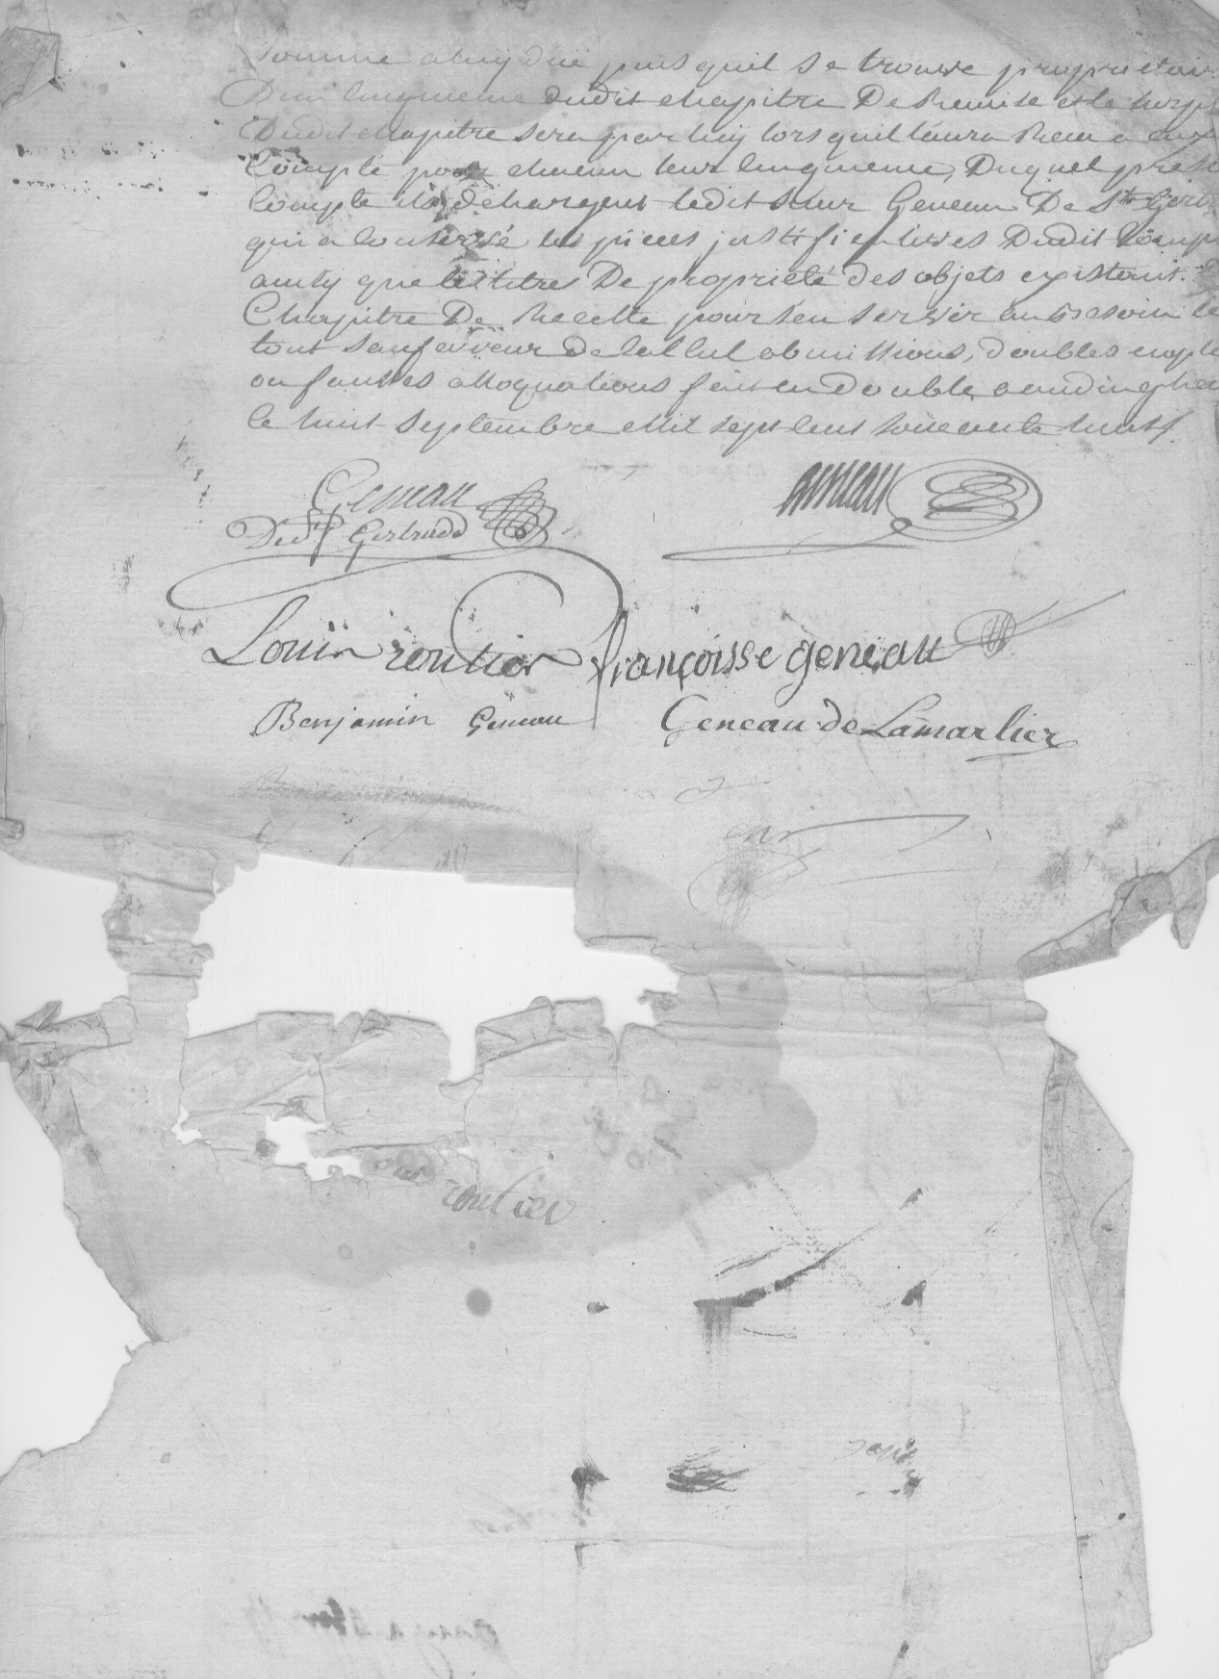 Somme a luy düe puis quil se trouve proprietair
D'un cinquieme dudit chapitre De Remise et le surp
Dudit chapitre sera par luy lors quil l'aura Recu a eux
Compté pour chacun leur cinquieme, Duquel prese
Compte ils déchargent ledit Sieur Geneau De Ste Gert
qui a conservé les pieces justificatives Dudit Comp
ainsy que les titres De proprieté des objets existent.
Chapitre De Recette pour s'en servir au besoin le
tout sauf erreur De Calcul obmissions, doubles emplo
ou fausses alloquations fait en Double a
le huit Septembre Mil Sept Cent Soixante huit
Geneau
De Ste Gertrude
geneau
Louis routier françoisse geneau
Benjamin Geneau Geneau de Lamarlier
routier